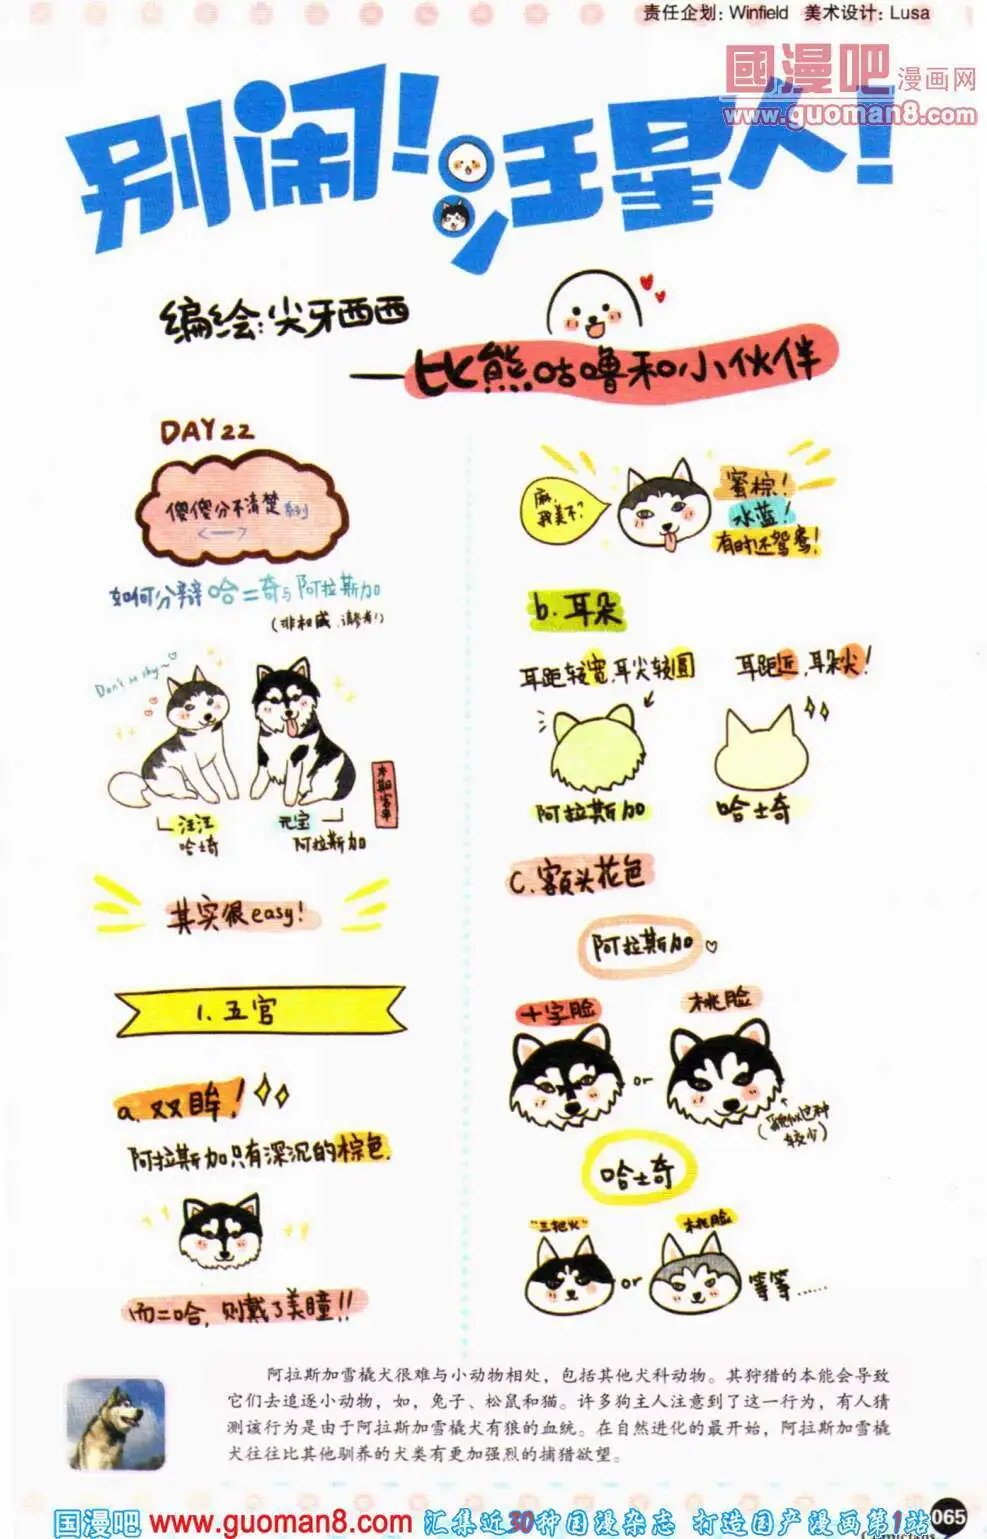 责任企划：Winfield 美术设计：Lusa
國漫吧漫画网
www.guoman8.com
别闹！汪星人！
编绘：尖牙西西
—比熊咕噜和小伙伴
DAY 22
傻傻分不清楚系列
如何分辩哈二奇与阿拉斯加
(非权威，请参考!)
Don't be shy~
汪汪
哈士奇
元宝
阿拉斯加
其实很easy!
1.五官
a.双眸!
阿拉斯加只有深沉的棕色.
而二哈,则戴了美瞳!!
麻,
我美不?
蜜棕!
水蓝!
有时还鸳鸯!
b.耳朵
耳距较宽,耳尖较圆
阿拉斯加
耳距近,耳朵尖!
哈士奇
C.额头花色
阿拉斯加
十字脸
or
桃脸
较少)
哈士奇
"三把火"
or
桃脸
等等……
阿拉斯加雪橇犬很难与小动物相处，包括其他犬科动物。其狩猎的本能会导致
它们去追逐小动物，如，兔子、松鼠和猫。许多狗主人注意到了这一行为，有人猜
测该行为是由于阿拉斯加雪橇犬有狼的血统。在自然进化的最开始，阿拉斯加雪橇
犬往往比其他驯养的犬类有更加强烈的捕猎欲望。
国漫吧 www.guoman8.com 汇集近30种国漫杂志 打造国产漫画第1站
065